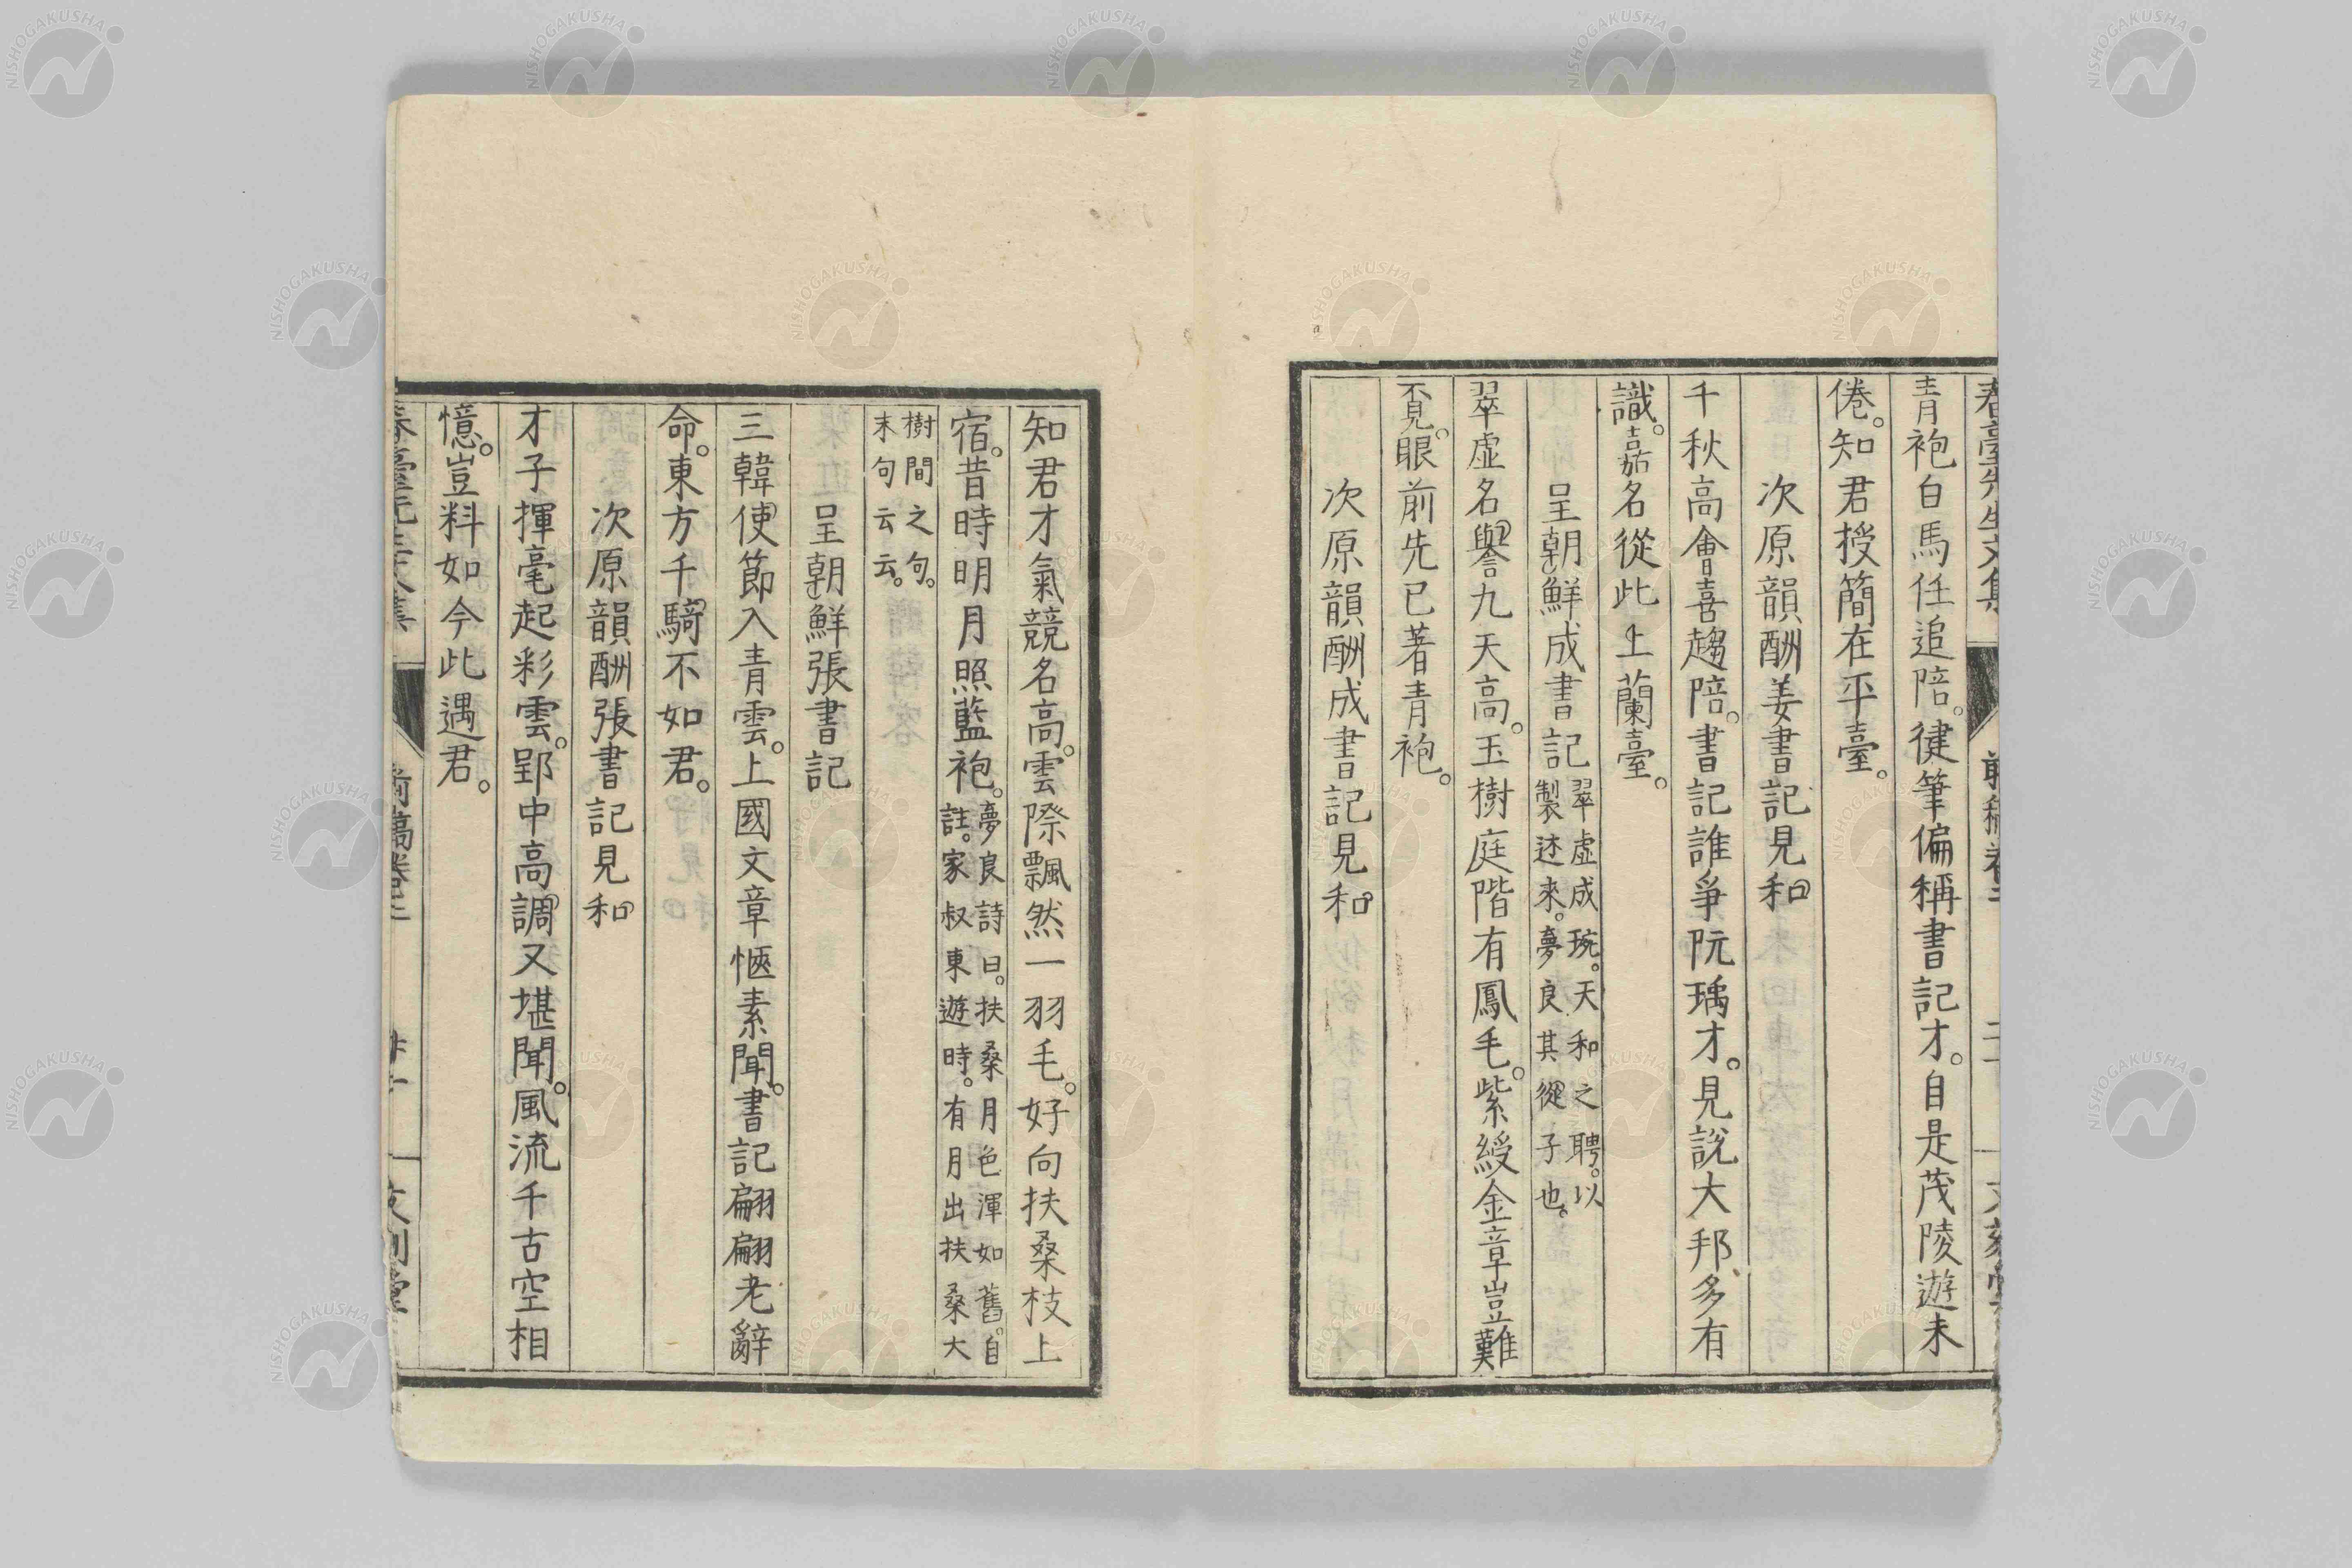 青袍白馬任追陪。健筆偏稱書記才。自是茂陵遊未
倦。知君授簡在平臺。
次原韻酬姜書記見和
千秋高會喜趨陪。書記誰爭阮瑀才。見說大邦多有
識。嘉名從此上蘭臺。
呈朝鮮成書記翠虛成琬。天和之聘。以
製述來。夢良其從子也。
翠虛名譽九天高。玉樹庭階有鳳毛。紫綬金章豈難
覓。眼前先已著青袍。
次原韻酬成書記見和
知君才氣競名高。雲際飄然一羽毛。好向扶桑枝上
宿。昔時明月照藍袍。夢良詩曰。扶桑月色渾如舊。自
註。家叔東遊時。有月出扶桑大
樹間之句。
末句云云。
呈朝鮮張書記
三韓使節入青雲。上國文章愜素聞。書記翩翩老辭
命。東方千騎不如君。
次原韻酬張書記見和
才子揮毫起彩雲。郢中高調又堪聞。風流千古空相
憶。豈料如今此遇君。
NISHOGAKUSHA